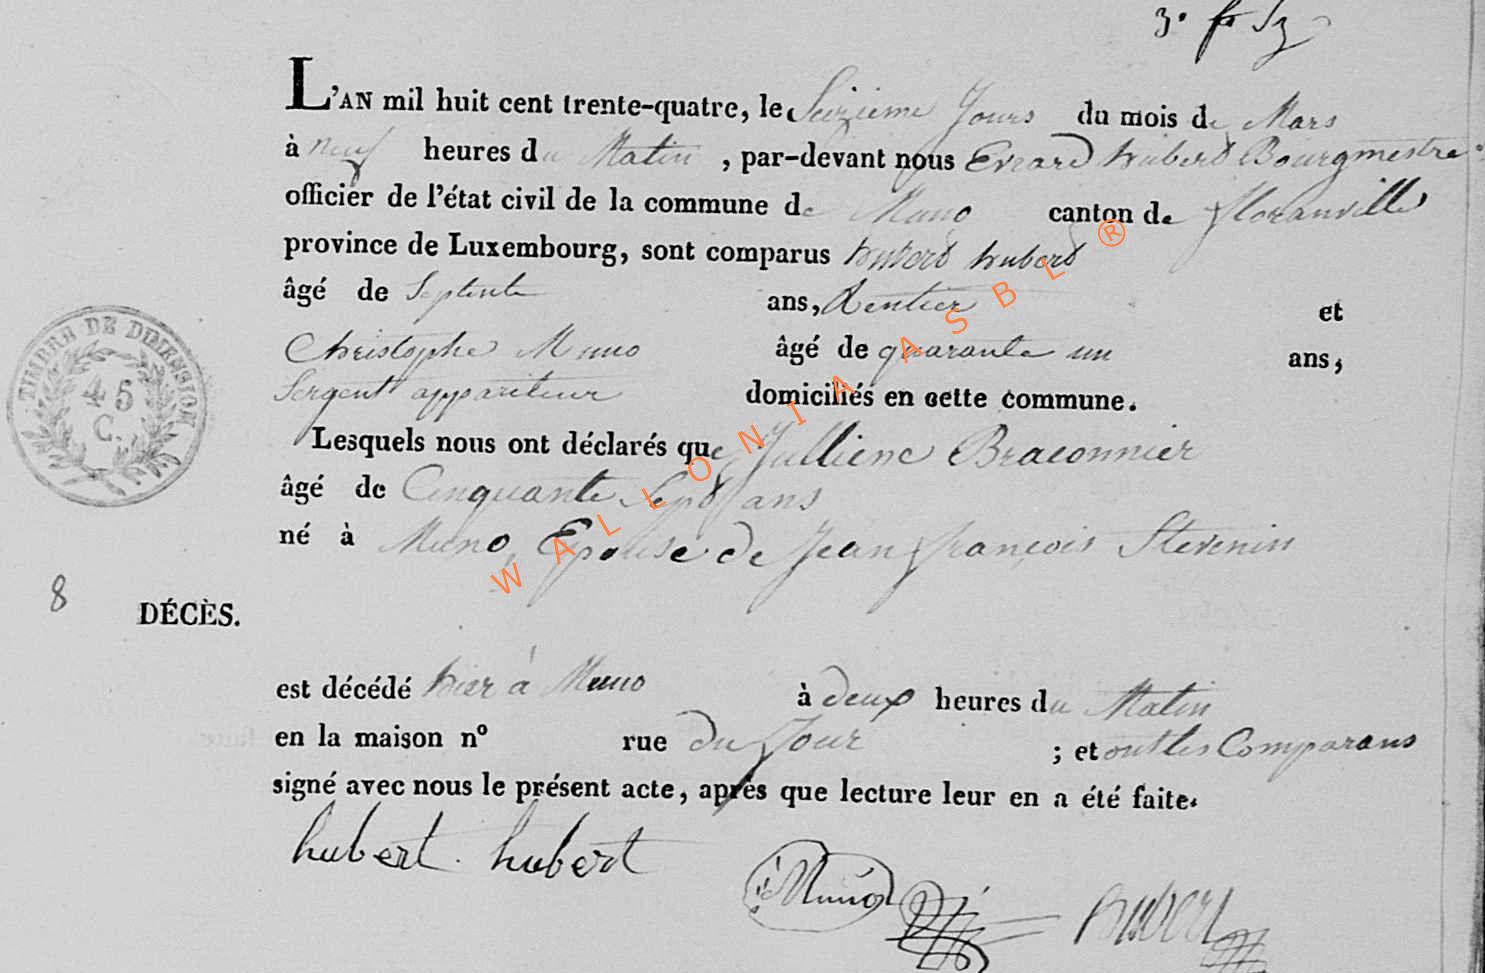 3.
L'AN mil huit cent trente-quatre, le Seizieme Jours du mois de Mars
à neuf heures du Matin, par-devant nous Evrard hubert Bourgmestre
officier de l'état civil de la commune de Muno canton de floranville
province de Luxembourg, sont comparus hubert hubert
âgé de Septente ans, Rentier et
Christophe Muno âgé de quarante un ans,
Sergent appariteur domiciliés en cette commune.
Lesquels nous ont déclarés que Jullienc Braconnier
âgé de Cinquante Sept ans
né à Muno, Epouse de Jean françois Stevenin
8 DÉCÈS.
est décédé hier à Muno à deux heures du Matin
en la maison nº rue du Jour ; et ont les Comparans
signé avec nous le présent acte, après que lecture leur en a été faite.
hubert. hubert
Muno hubert
TIMBRE DE DIMENSION
45
C.
WALLONIA ASBL ®